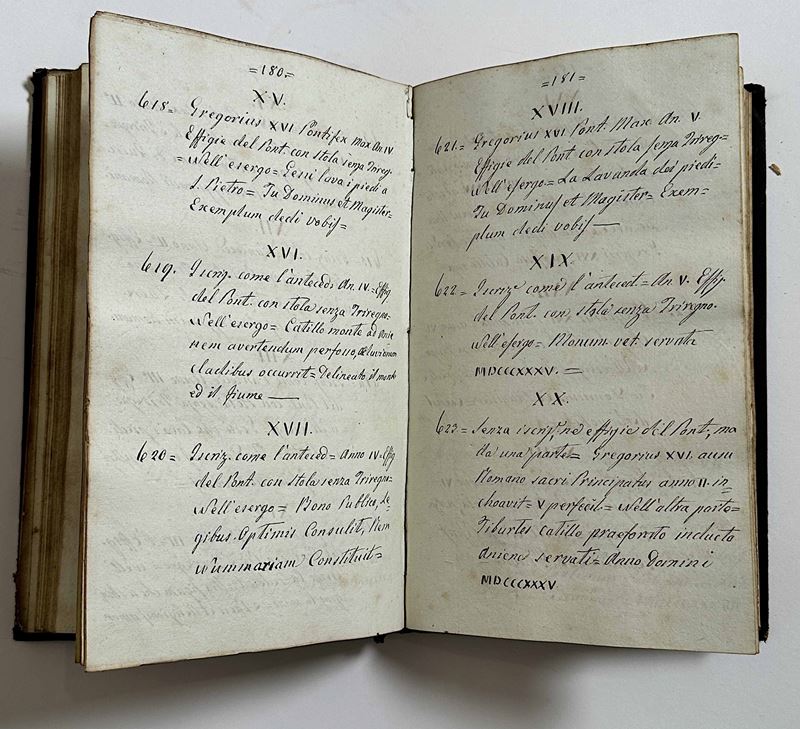 =180=
XV.
618= Gregorius XVI Pontifex Max. An. IV
Effigie del Pont. con stola senza Trireg.
=Nell'esergo= Gesù lava i piedi a
S. Pietro= Tu Dominus et Magister=
Exemplum dedi vobis=
XVI.
619. Iscriz. come l'anteced: An. IV= Effig.
del Pont. con stola senza Triregno=
Nell'esergo= Catillo monte ad Anie
nem avertendum perfosso,
cladibus occurrit= Delineato il monte
ed il fiume —
XVII.
620= Iscriz. come l'anteced= Anno IV= Effig
del Pont. con stola senza Triregno=
Nell'esergo= Bono Publico, Le=
gibus Optimis Consulit, Rem
Nummariam Constituit=
=181=
XVIII.
621.= Gregorius XVI Pont. Max. An. V.
Effigie del Pont. con stola senza Trireg=
Nell'esergo= La Lavanda dei piedi=
Tu Dominus et Magister= Exem=
plum dedi vobis —
XIX.
622= Iscriz.e come l'anteced= An. V. Effig.
del Pont. con stola senza Triregno.
Nell'esergo= Monum. vet. servata
MDCCCXXXV. =
XX.
623= Senza iscriz.e, ne effigie del Pont., ma
da una parte= Gregorius XVI. ausu
Romano sacri Principatus anno II. in
choavit= V perfecit= Nell'altra parte=
Tiburtes catillo praeforato inclucta
Aniene servati= Anno Domini
MDCCCXXXV.